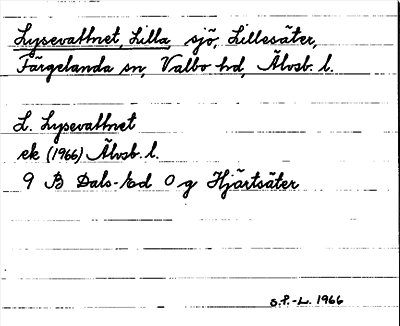 Lysevattnet, Lilla, sjö, Lillesäter,
Färgelanda sn, Valbo hd, Älvsb. l.
L. Lysevattnet
ek (1966) Älvsb. l.
9 B Dals-Ed 0 g Hjärtsäter
S.P.-L. 1966